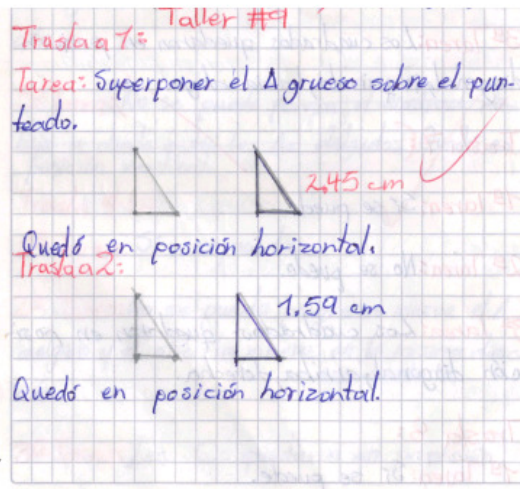 Taller #9
Traslaa1:
Tarea: Superponer el Δ grueso sobre el pun-
teado.
2,45 cm
Quedó en posición horizontal.
Traslaa2:
1,59 cm
Quedó en posición horizontal.